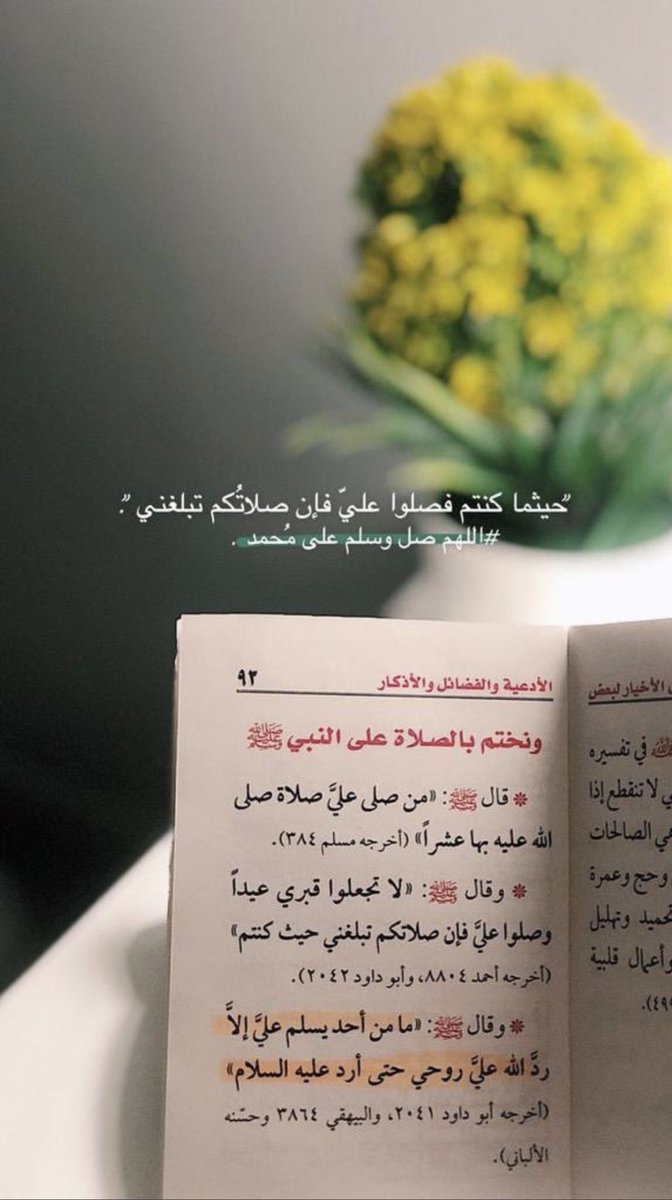 "حيثما كنتم فصلوا عليّ فإن صلاتُكم تبلغني ".
#اللهم صل وسلم على مُحمد .
الأدعية والفضائل والأذكار ٩٣
ونختم بالصلاة على النبي ﷺ
* قال ﷺ: «من صلى عليَّ صلاة صلى
الله عليه بها عشراً» (أخرجه مسلم ٣٨٤).
* وقال ﷺ: «لا تجعلوا قبري عيداً
وصلوا عليَّ فإن صلاتكم تبلغني حيث كنتم»
(أخرجه أحمد ٨٨٠٤، وأبو داود ٢٠٤٢).
* وقال ﷺ: «ما من أحد يسلم عليَّ إلاَّ
ردَّ الله عليَّ روحي حتى أرد عليه السلام»
(أخرجه أبو داود ٢٠٤١، والبيهقي ٣٨٦٤ وحسّنه
الألباني).
الأخيار لبعض
ﷺ في تفسيره
لا تنقطع إذا
الصالحات
وحج وعمرة
وتهليل
وأعمال قلبية